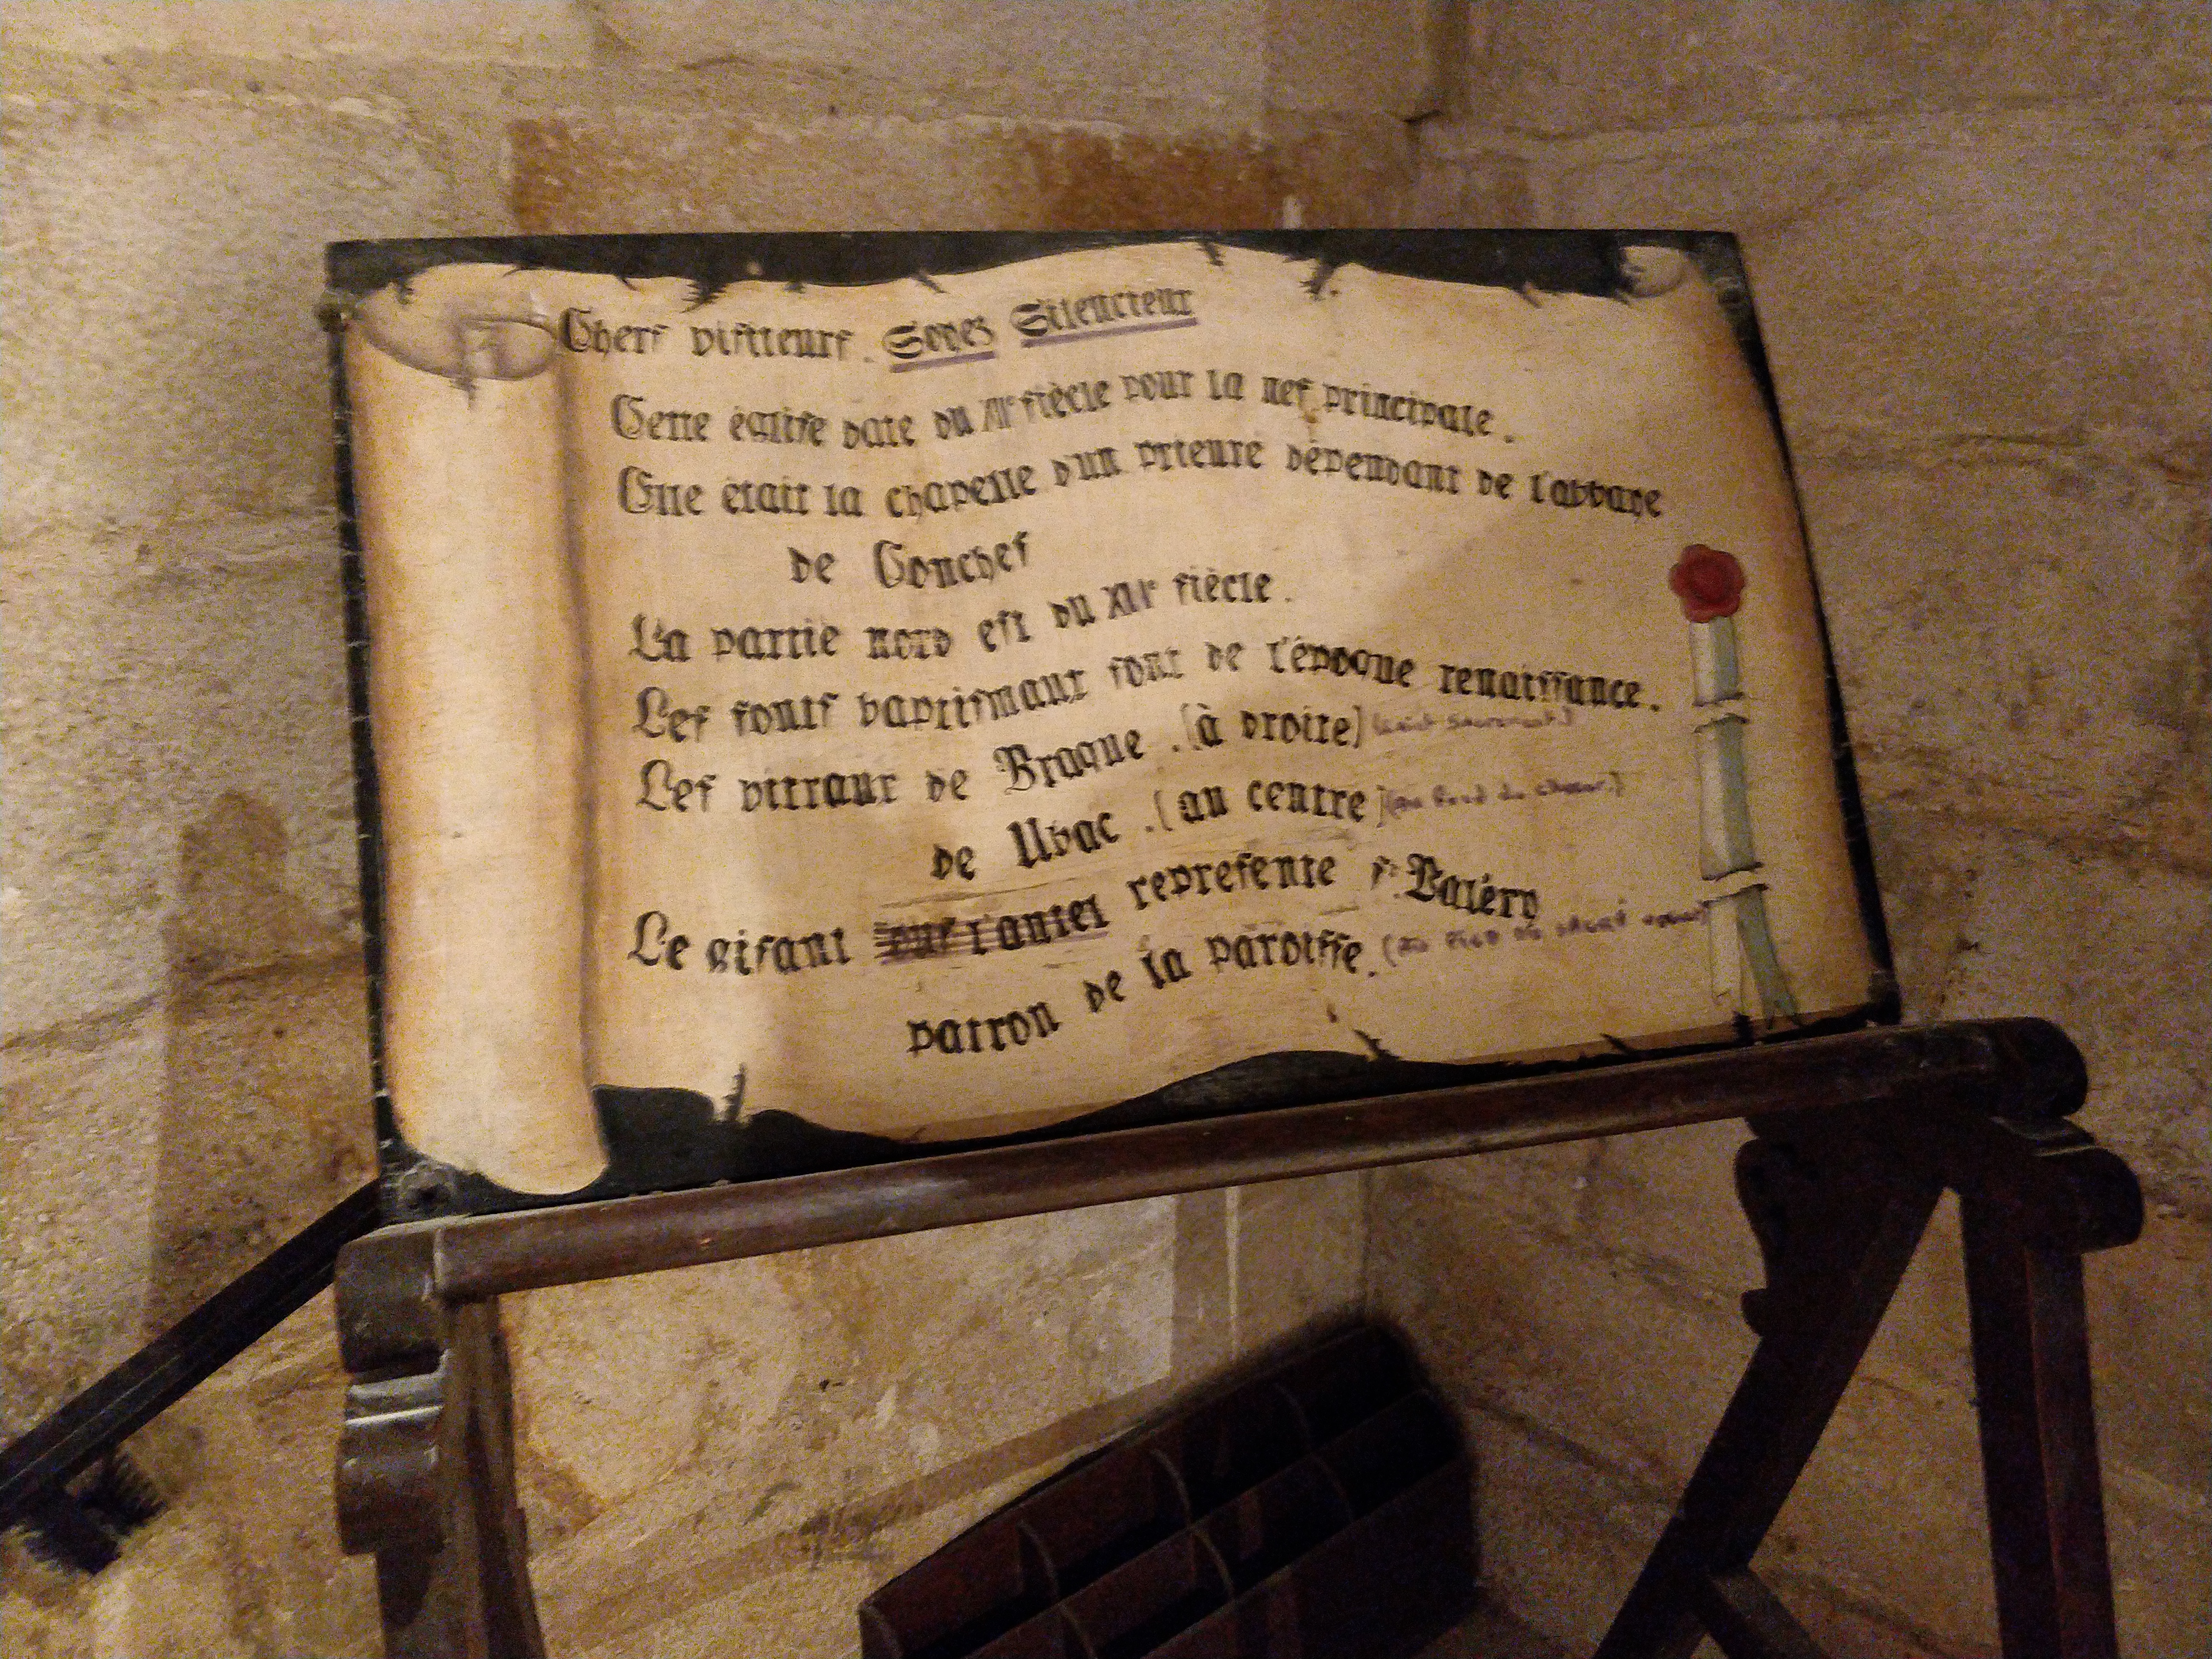 Chers visiteurs. Soyez Silencieux
Cette église date du XIe siècle pour la nef principale.
Elle était la chapelle d'un prieuré dépendant de l'abbaye
de Conches
La partie nord est du XVIe siècle.
Les fonts baptismaux sont de l'époque renaissance.
Les vitraux de Braque. (à droite) (Saint Sacrement.)
de Ubac. (au centre) (au fond du chœur.)
Le gisant sur l'autel represente St Valéry
patron de la paroisse. (au pied du